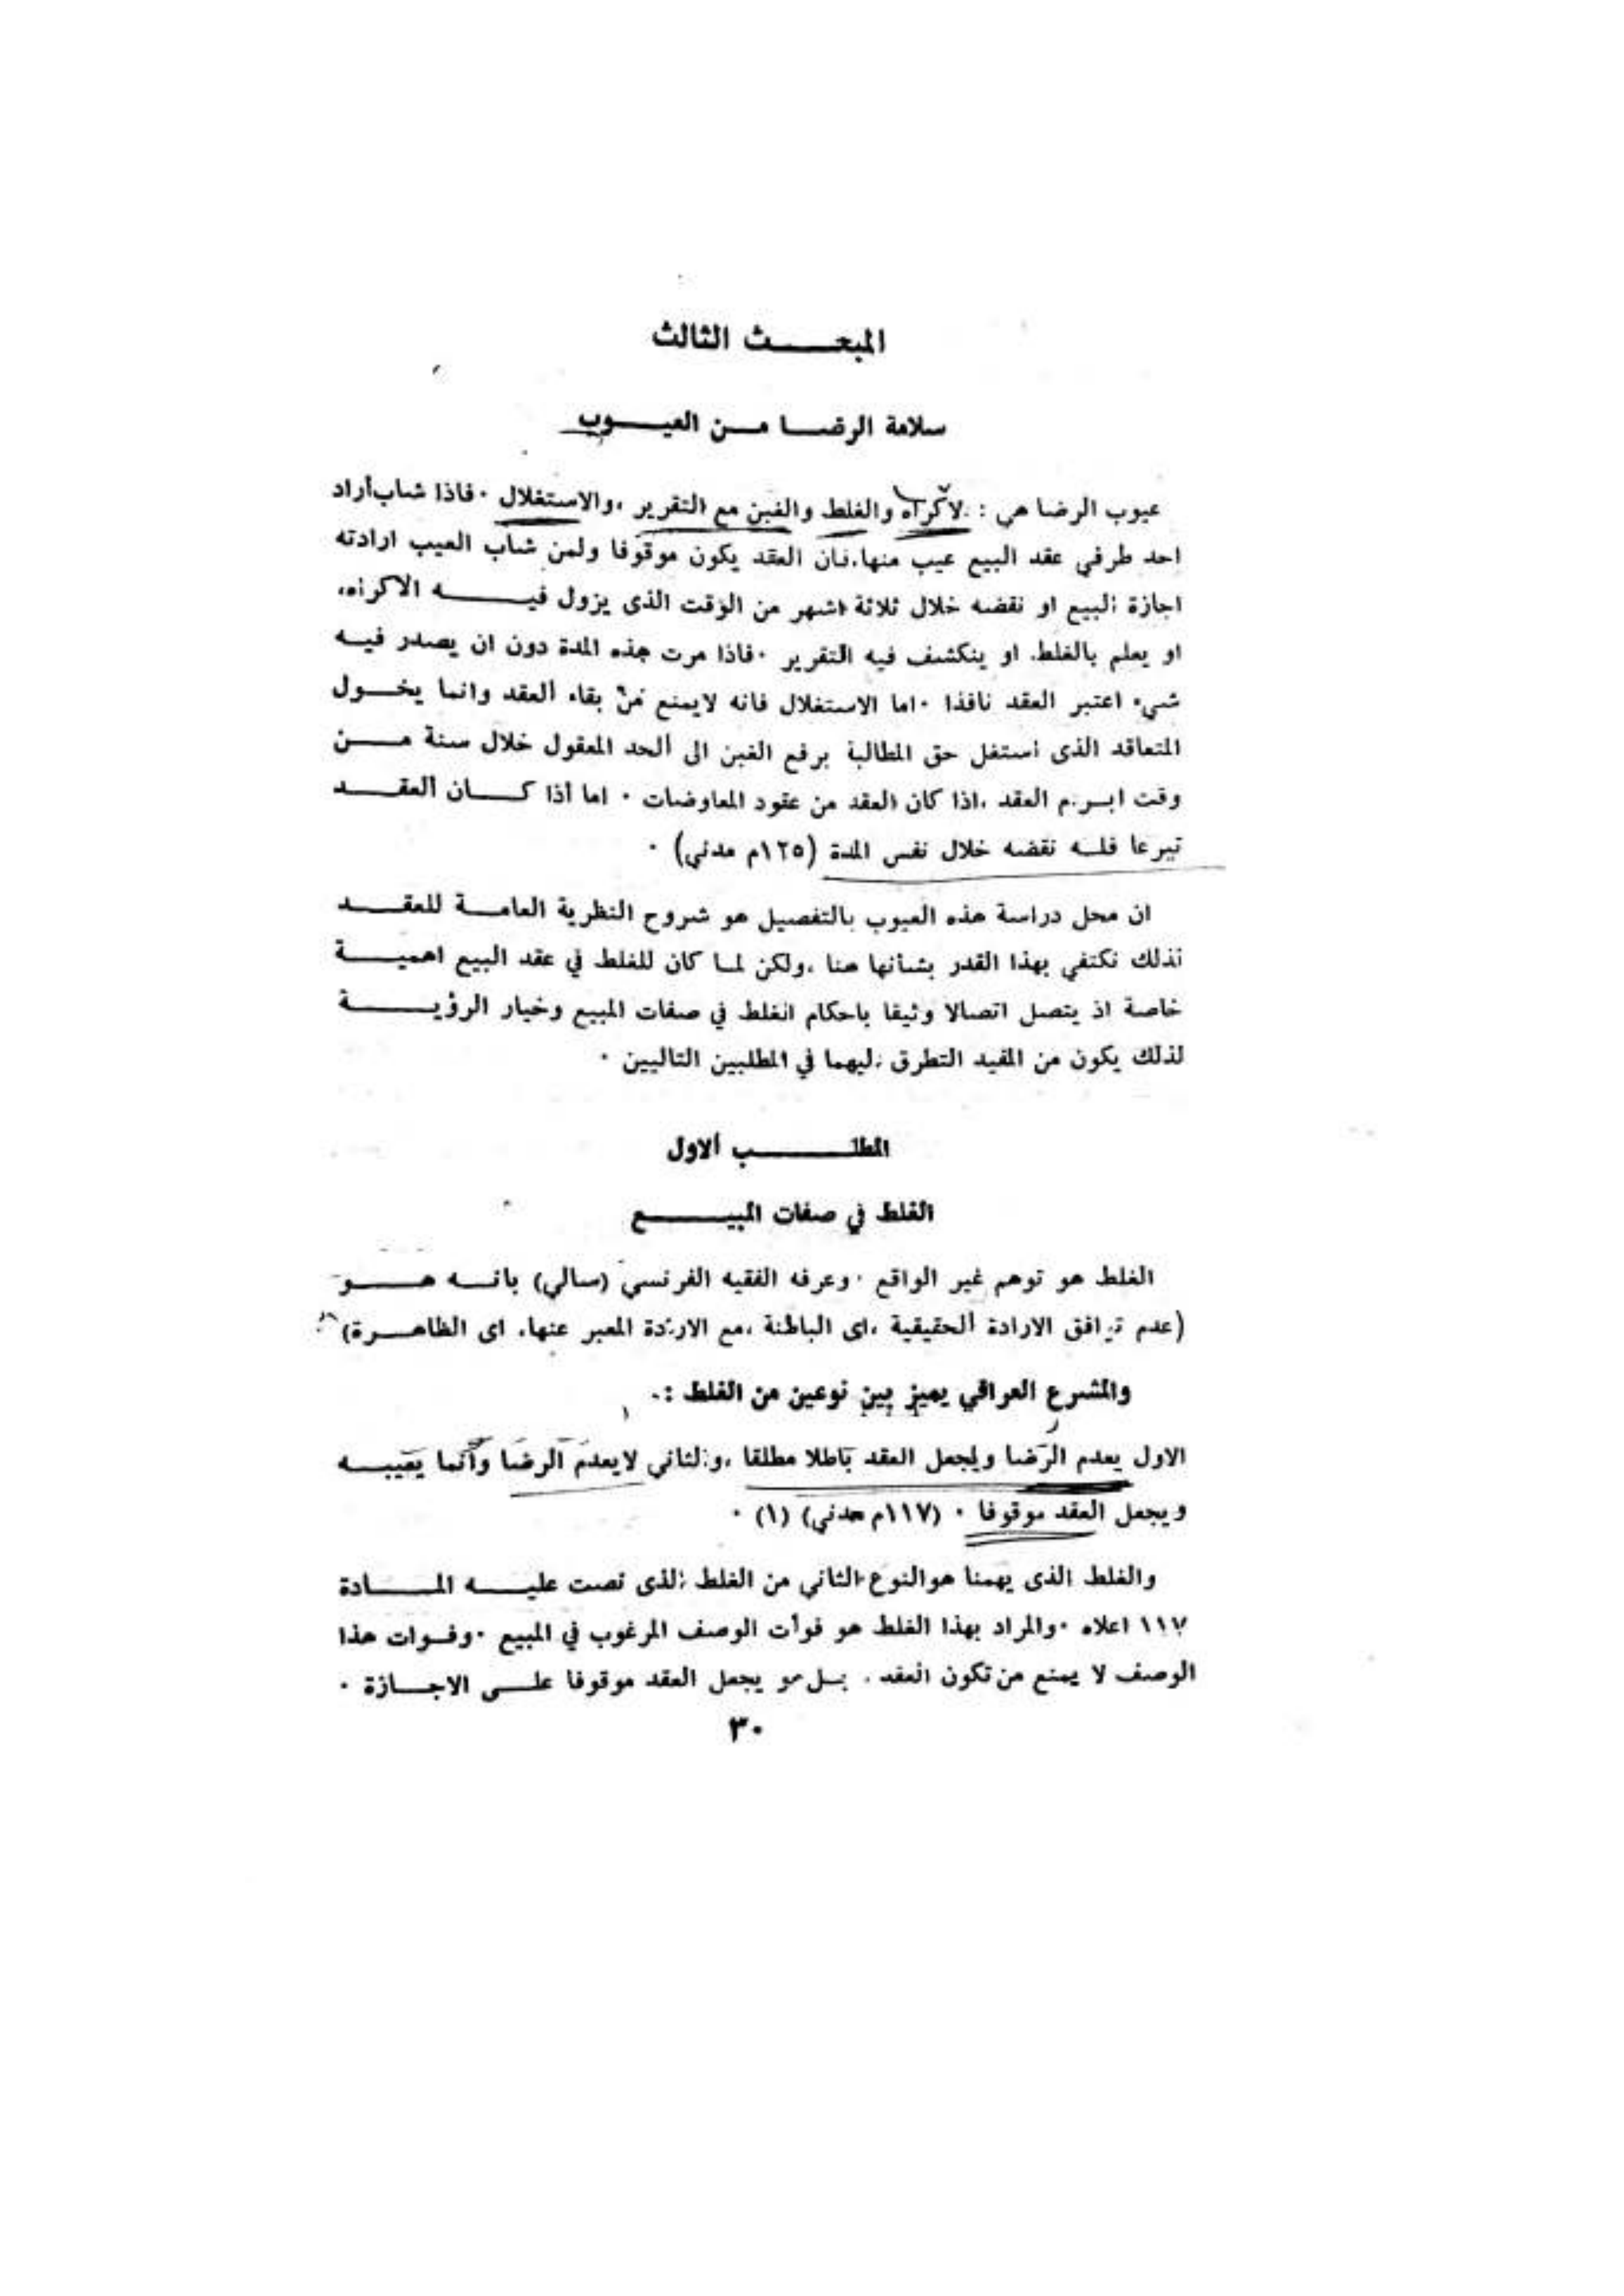 المبحـــث الثالث
سلامة الرضــا مــن العيــوب
عيوب الرضا هي : الاكراه والغلط والغبن مع التغرير ،والاستغلال ٠ فاذا شاب أراد
احد طرفي عقد البيع عيب منها، فان العقد يكون موقوفا ولمن شاب العيب ارادته
اجازة البيع او نقضه خلال ثلاثة اشهر من الوقت الذى يزول فيــــه الاكراه،
او يعلم بالغلط، او ينكشف فيه التغرير ٠ فاذا مرت هذه المدة دون ان يصدر فيــه
شيء اعتبر العقد نافذا ٠ اما الاستغلال فانه لايمنع من بقاء العقد وانما يخــول
المتعاقد الذى استغل حق المطالبة برفع الغبن الى الحد المعقول خلال سنة مــن
وقت ابرام العقد ،اذا كان العقد من عقود المعاوضات ٠ اما أذا كــان العقــد
تبرعا فلــه نقضه خلال نفس المدة (١٢٥م مدني) ٠
ان محل دراسة هذه العيوب بالتفصيل هو شروح النظرية العامــة للعقــد
لذلك نكتفي بهذا القدر بشأنها هنا ،ولكن لمــا كان للغلط في عقد البيع اهميــة
خاصة اذ يتصل اتصالا وثيقا باحكام الغلط في صفات المبيع وخيار الرؤيــــة
لذلك يكون من المفيد التطرق اليهما في المطلبين التاليين ٠
المطلــــب الاول
الغلط في صفات المبيــــع
الغلط هو توهم غير الواقع ٠ وعرفه الفقيه الفرنسي (سالي) بانــه هــو
(عدم توافق الارادة الحقيقية ،اى الباطنة ،مع الارادة المعبر عنها، اى الظاهــرة) ٠
والمشرع العراقي يميز بين نوعين من الغلط :-
الاول يعدم الرضا ويجعل العقد باطلا مطلقا ،والثاني لايعدم الرضا وانما يعيبــه
ويجعل العقد موقوفا ٠ (١١٧م مدني) (١) ٠
والغلط الذى يهمنا هو النوع الثاني من الغلط الذى نصت عليــه المــادة
١١٧ اعلاه ٠ والمراد بهذا الغلط هو فوات الوصف المرغوب في المبيع ٠ وفــوات هذا
الوصف لا يمنع من تكون العقد ، بــل هو يجعل العقد موقوفا علــى الاجــازة ٠
٣٠